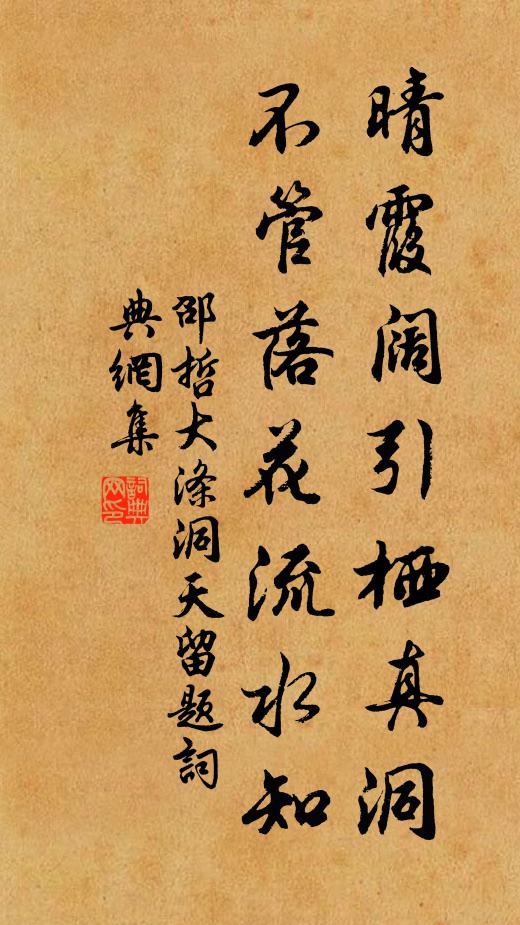 晴霞阔引栖真洞
不管落花流水知
邵哲大涤洞天留题词
典網集
詞典網印